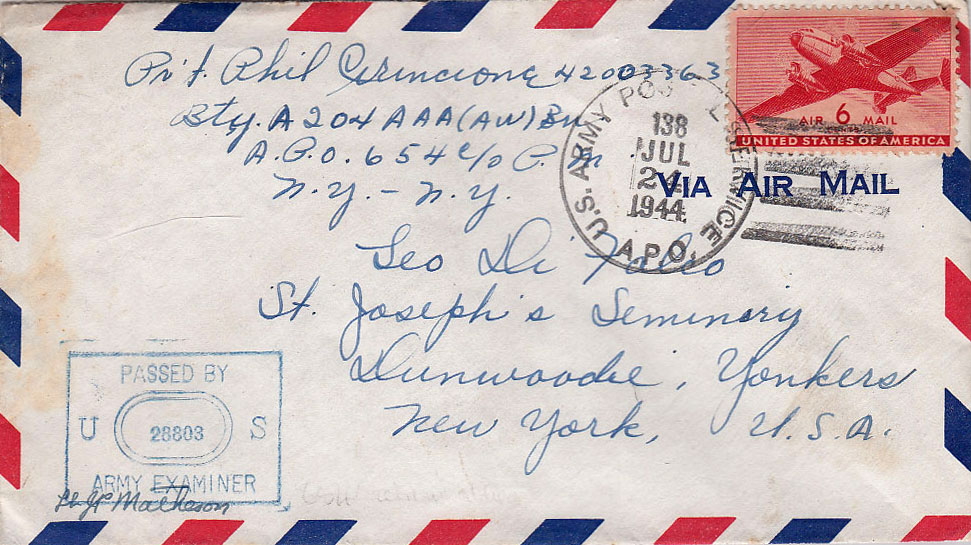 Pvt. Phil Cirincione 42003363
Bty. A 204 AAA (AW) Bn
A.P.O. 654 c/o P.M.
N.Y. - N.Y.
AIR 6 MAIL
UNITED STATES OF AMERICA
U.S. ARMY POSTAL SERVICE
138
JUL
24
1944
A.P.O.
VIA AIR MAIL
Leo Di Falco
St. Joseph's Seminary
Dunwoodie, Yonkers
New York, U.S.A.
PASSED BY
U 28803 S
ARMY EXAMINER
Matheson